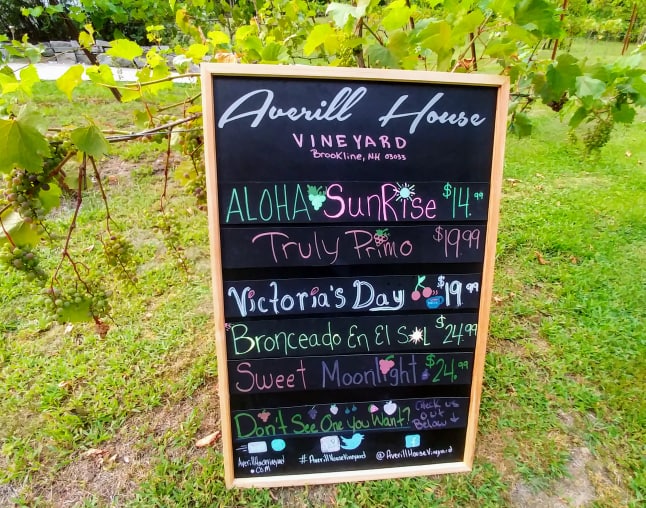 Averill House
VINEYARD
Brookline, NH 03033
ALOHA SunRise $14.99
Truly Primo $19.99
Victoria's Day $19.99
Bronceado En El Sol $24.99
Sweet Moonlight $24.99
Don't See One You Want? Check us out Below ↓
AverillHouseVineyard.com #AverillHouseVineyard @AverillHouseVineyard